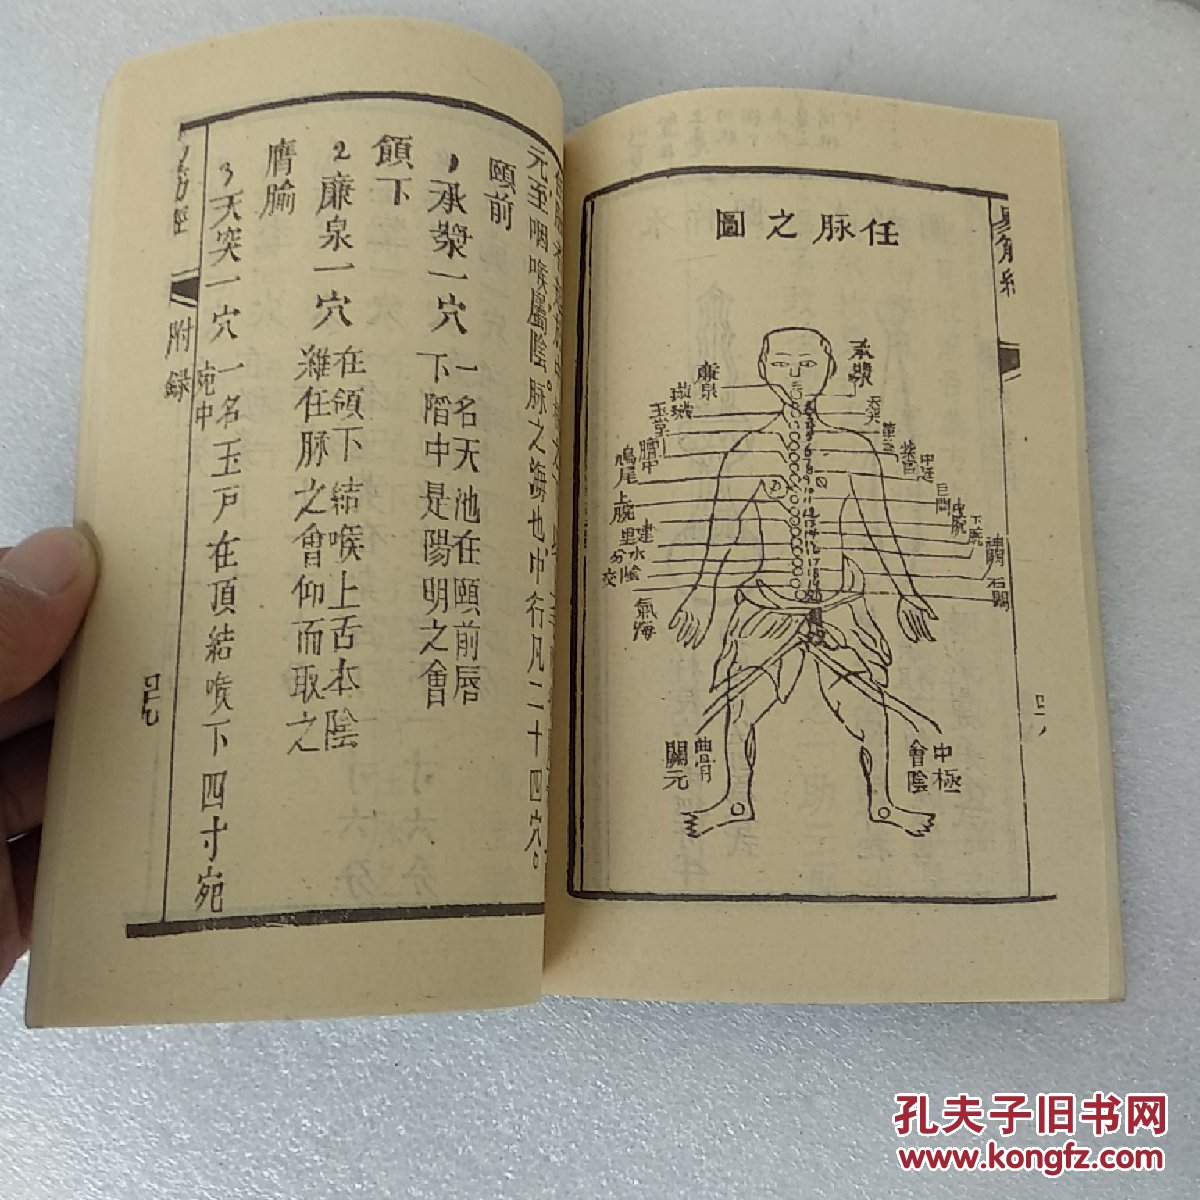 任脉之圖
承漿
廉泉
天突
璇璣
華蓋
玉堂
紫宮
膻中
中庭
鳩尾
巨闕
上脘
中脘
建里
下脘
水分
神闕
陰交
石關
氣海
曲骨
關元
中極
會陰
元至咽喉屬陰脉之海也中行凡二十四穴。
頤前
1承漿一穴
一名天池在頤前唇
下陷中是陽明之會
頷下
2廉泉一穴
在頷下結喉上舌本陰
維任脉之會仰而取之
膺腧
3天突一穴一名玉戸在頂結喉下四寸宛
宛中
筋經
附録
孔夫子旧书网
www.kongfz.com